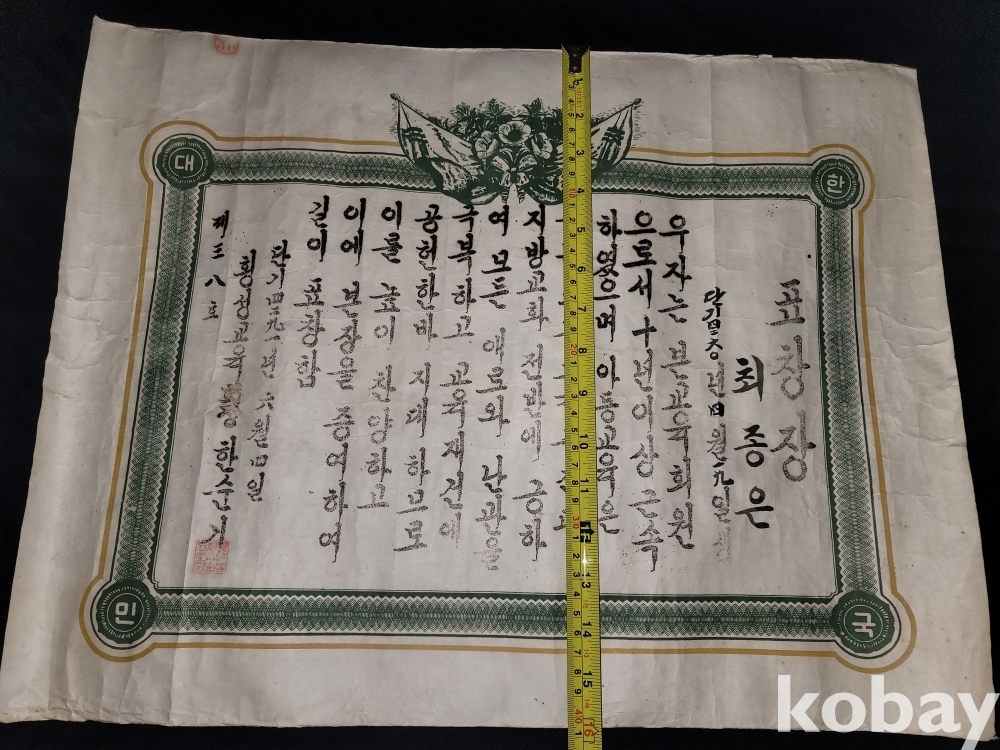 표창장
최종은
우자는 본교육회원
으로서 十년이상 근속
하였으며 아동교육은
지방교화 전반에 긍하
여 모든 애로와 난관을
극복하고 교육재건에
공헌한바 지대 하므로
이를 높이 찬양하고
이에 본장을 증여하여
길이 표창함
단기四二九一년 六월 日
횡성 한순기
제三八호
대
한
민
국
kobay